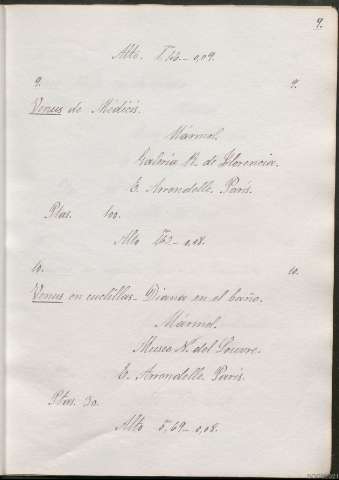 9.
Alto. 1,43 - 0,09.
9. 9.
Venus de Médicis.
Mármol.
Galeria R. de Florencia.
E. Arrondelle. Paris.
Ptas. 100.
Alto 1,52 - 0,08.
10. 10.
Venus en cuclillas - Diana en el baño.
Mármol.
Museo N. del Louvre.
E. Arrondelle. Paris.
Ptas. 30.
Alto 0,69 - 0,08.